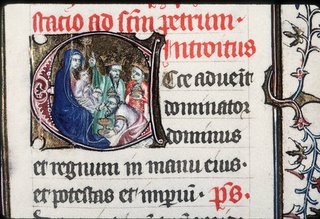 statio ad scm petrum.
Introitus
Ecce advenit
dominator
dominus
et regnum in manu eius.
et potestas et imperiu. ps.